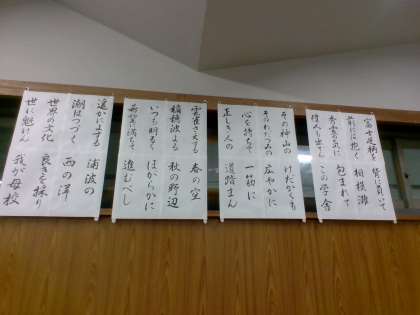 富士足柄を 背に負いて
前には抱く 相模灘
秀霊の気に 包まれて
偉人も出でし この学舎
その神山の けだかくも
そのわたつみの 広やかに
心を持ちて 一筋に
正しき人の 道踏まん
雲雀さえずる 春の空
稲穂波よる 秋の野辺
いつも明るく ほがらかに
希望に満ちて 進むべし
遥かによする 浦波の
潮はつづく 西の洋
世界の文化 良きを採り
世に魁けん 我が母校